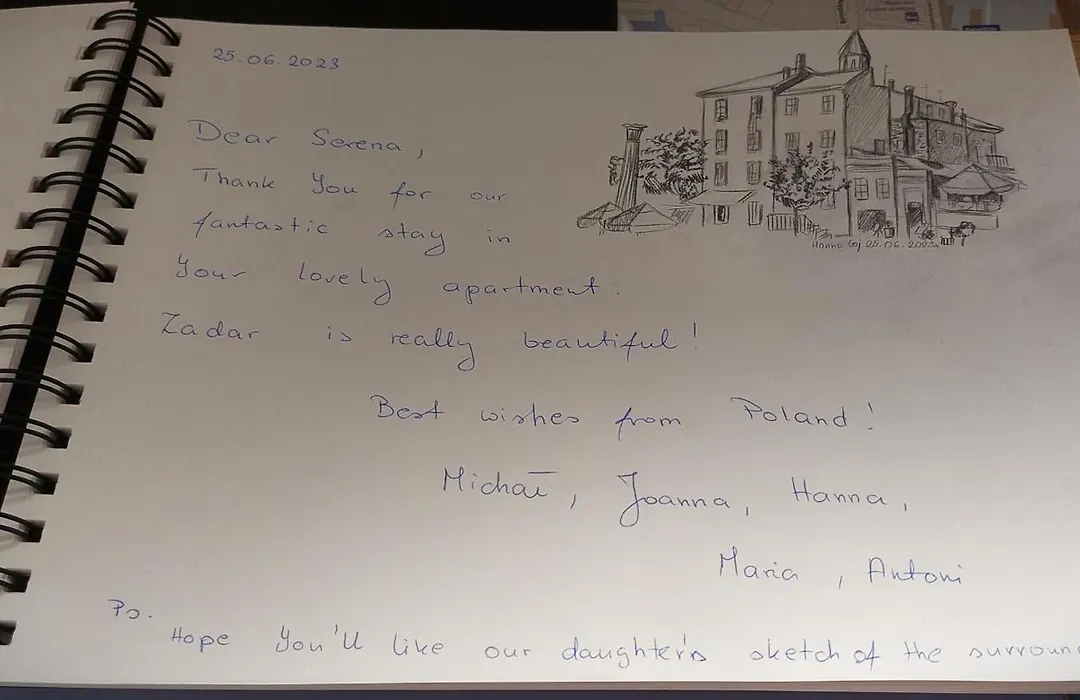 25.06.2023
Dear Serena,
Thank You for our
fantastic stay in
Your lovely apartment.
Zadar is really beautiful!
Best wishes from Poland!
Michał, Joanna, Hanna,
Maria, Antoni
Ps.
Hope You'll like our daughter's sketch of the surroun
Hanna Goj 25.06.2023